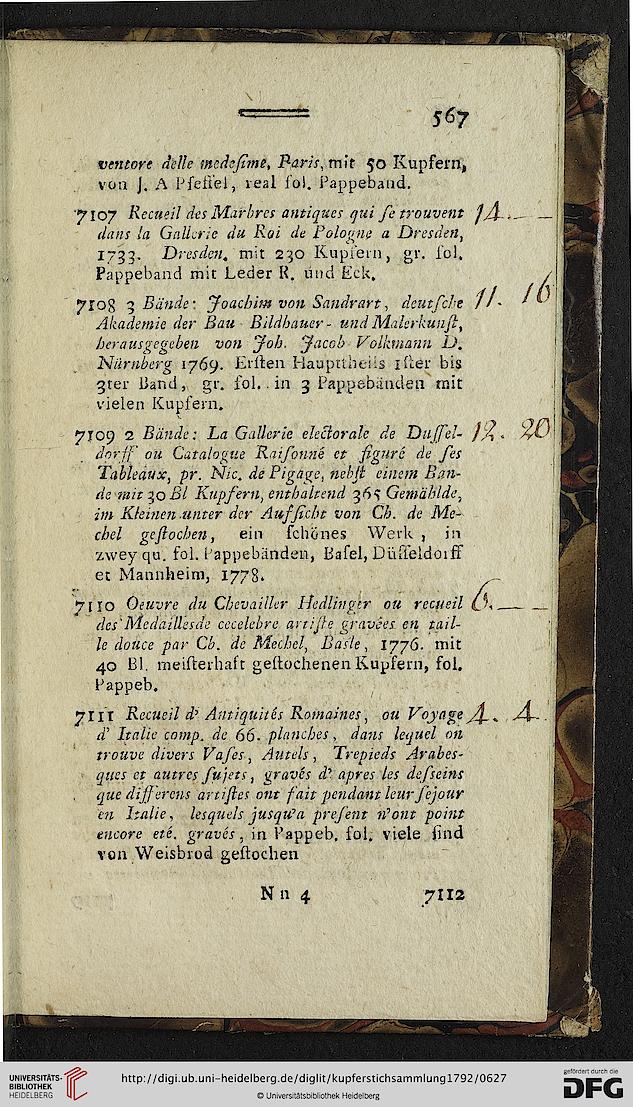 567
ventore delle medesime, Paris, mit 50 Kupfern,
von J. A Pfeffel, real fol. Pappeband.
7107 Recueil des Marbres antiques qui ſe trouvent 14. — —
dans la Gallerie du Roi de Pologne a Dresden,
1733. Dresden. mit 230 Kupfern, gr. fol.
Pappeband mit Leder R. und Eck.
7108 3 Bände: Joachim von Sandrart, deutſche 11. 16
Akademie der Bau Bildhauer- und Malerkunſt,
herausgegeben von Joh. Jacob Volkmann D.
Nürnberg 1769. Erſten Haupttheils 1ſter bis
3ter Band, gr. fol. in 3 Pappebänden mit
vielen Kupfern.
7109 2 Bände: La Gallerie electorale de Duſſel- 12. 20
dorff ou Catalogue Raiſonné et figuré de ſes
Tableaux, pr. Nic. de Pigage, nebſt einem Ban-
de mit 30 Bl Kupfern, enthaltend 365 Gemählde,
im Kleinen unter der Aufſicht von Ch. de Me-
chel geſtochen, ein ſchönes Werk, in
zwey qu. fol. Pappebänden, Baſel, Düſſeldorff
et Mannheim, 1778.
7110 Oeuvre du Chevailler Hedlinger ou recueil 6. — —
des Medaillesde cecelebre artiſte gravées en tail-
le douce par Ch. de Mechel, Basle, 1776. mit
40 Bl. meiſterhaft geſtochenen Kupfern, fol.
Pappeb.
7111 Recueil d' Antiquités Romaines, ou Voyage 4. 4.
d' Italie comp. de 66. planches, dans lequel on
trouve divers Vaſes, Autels, Trepieds Arabes-
ques et autres ſujets, gravés d' apres les deſseins
que differens artiſtes ont fait pendant leur ſejour
en Italie, lesquels jusqu'a preſent n'ont point
encore eté. gravés, in Pappeb. fol. viele ſind
von Weisbrod geſtochen
N n 4 7112
UNIVERSITÄTS-
BIBLIOTHEK
HEIDELBERG
http://digi.ub.uni-heidelberg.de/diglit/kupferstichsammlung1792/0627
© Universitätsbibliothek Heidelberg
gefördert durch die
DFG